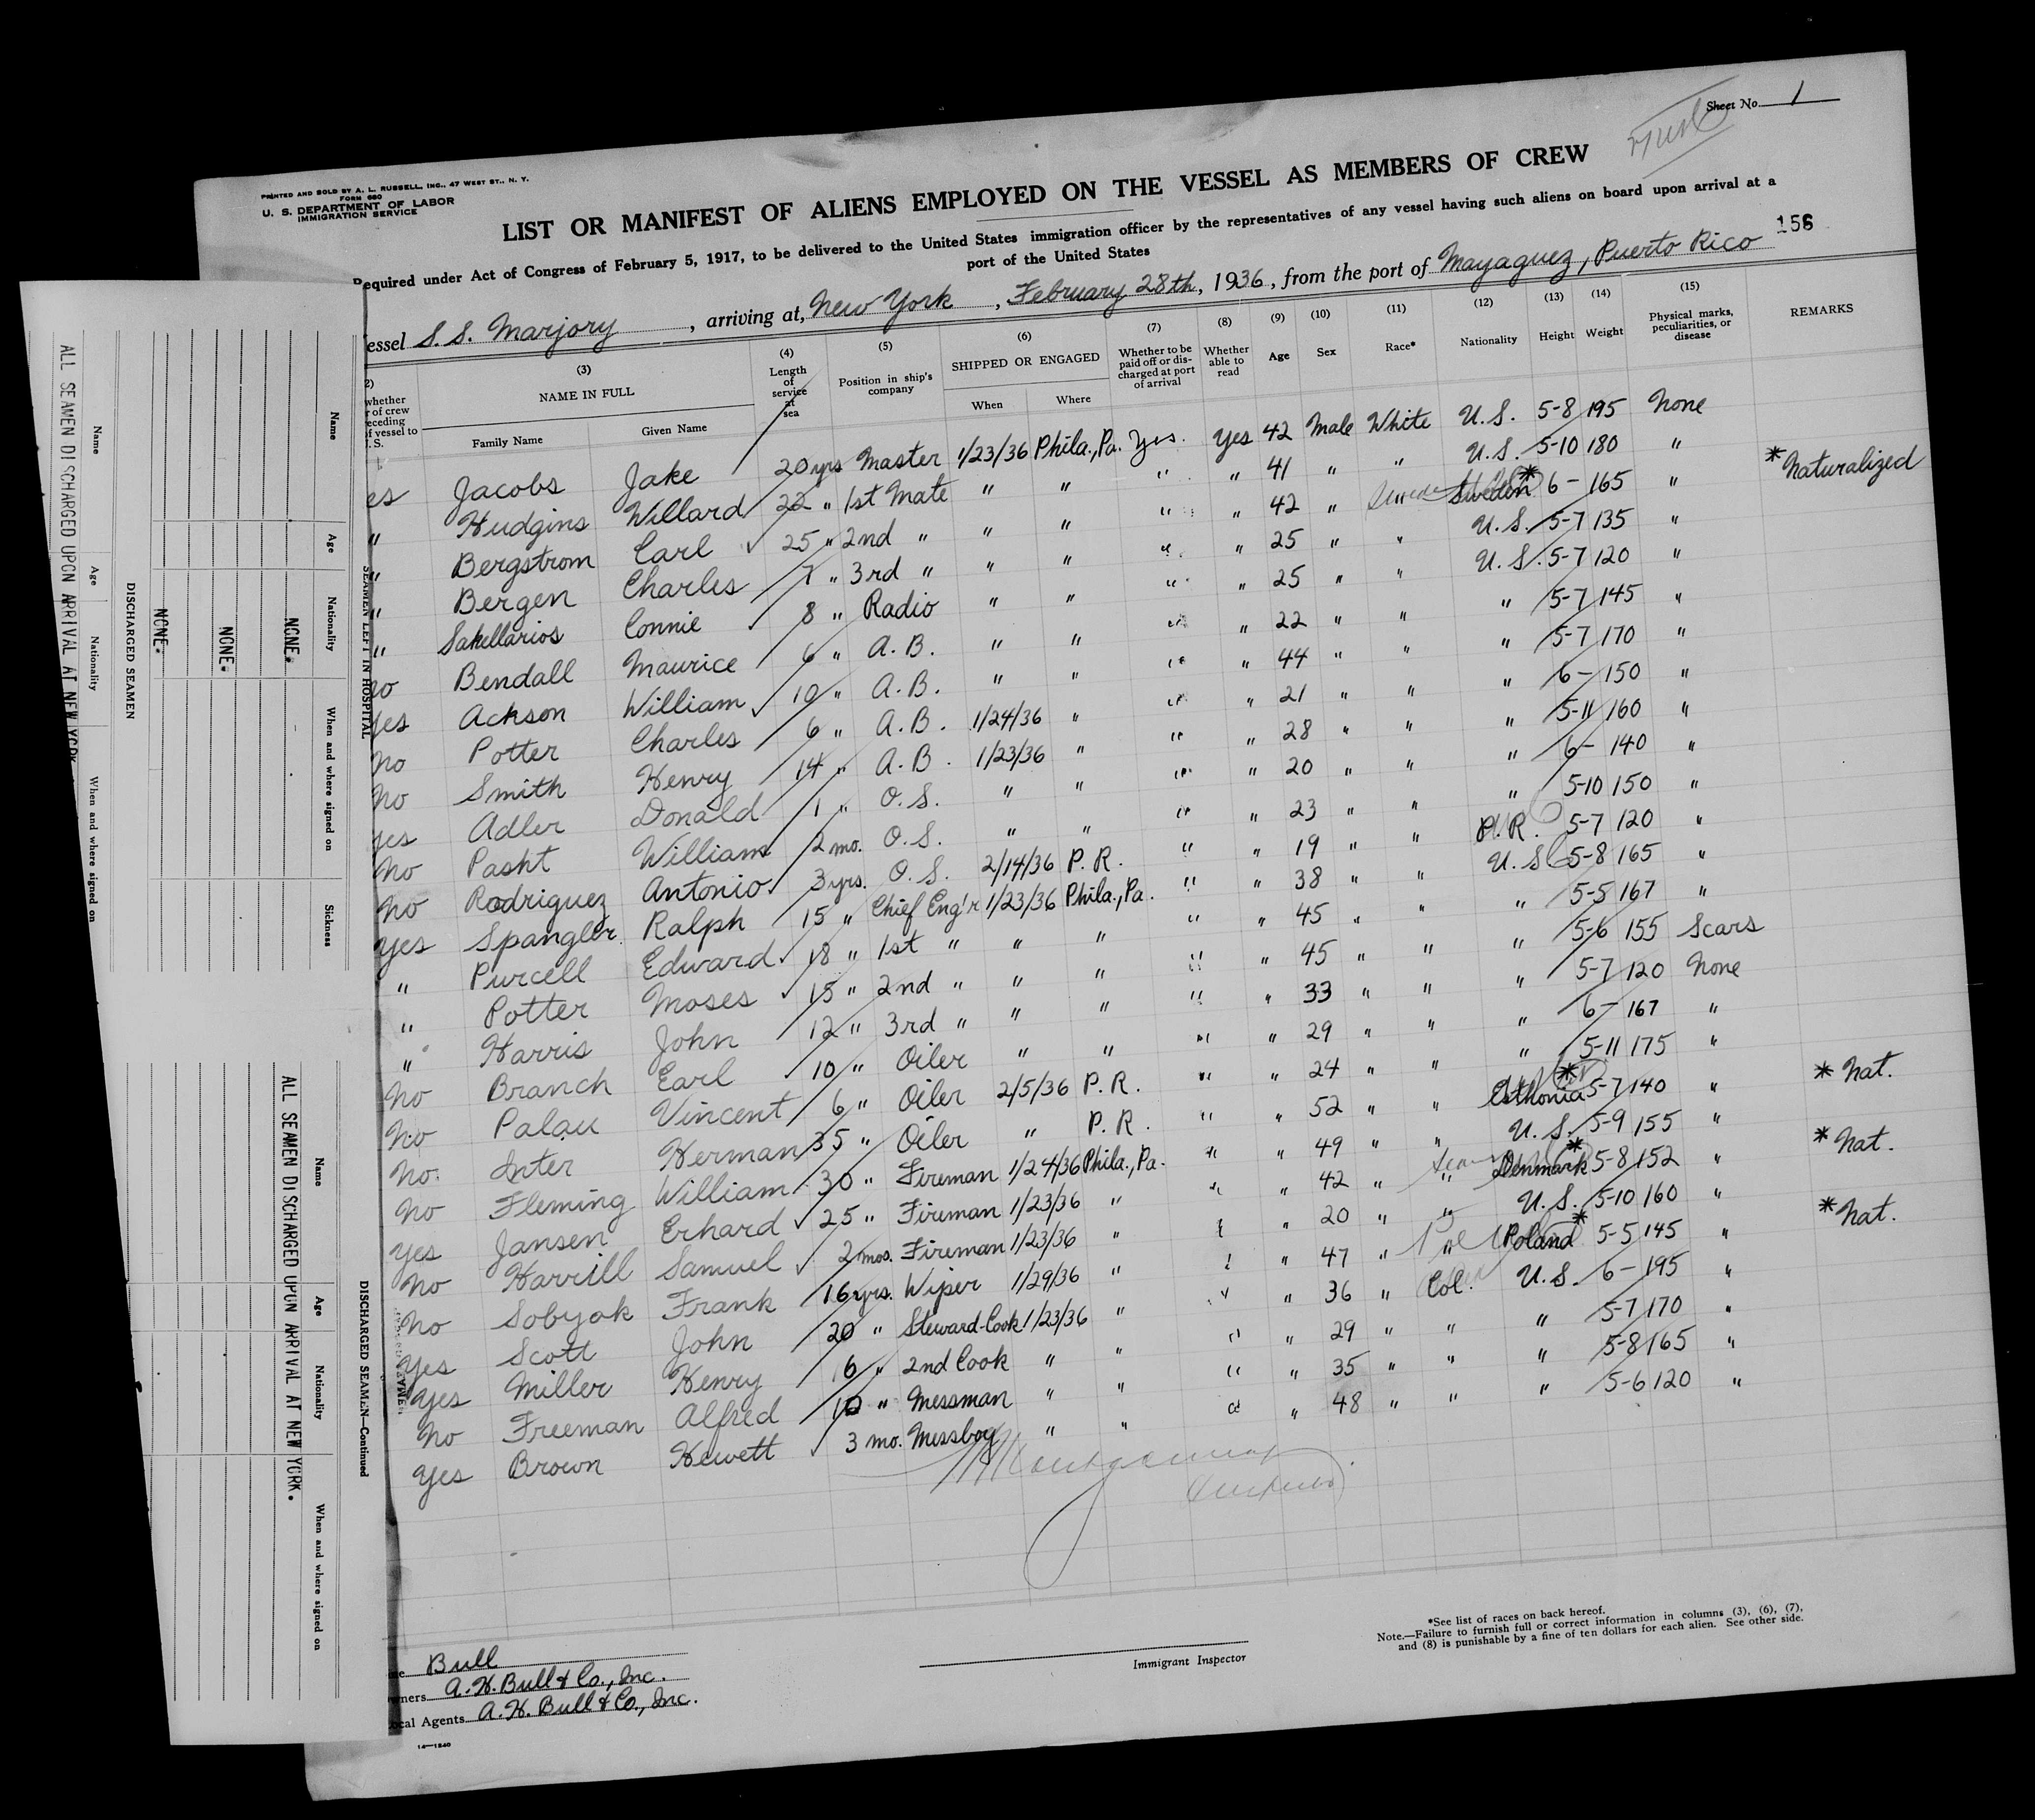 Sheet No. 1
PRINTED AND SOLD BY A. L. RUSSELL, INC., 47 WEST ST., N. Y.
FORM 680
U. S. DEPARTMENT OF LABOR
IMMIGRATION SERVICE
LIST OR MANIFEST OF ALIENS EMPLOYED ON THE VESSEL AS MEMBERS OF CREW
Required under Act of Congress of February 5, 1917, to be delivered to the United States immigration officer by the representatives of any vessel having such aliens on board upon arrival at a
port of the United States
156
essel S. S. Marjory, arriving at, New York, February 28th, 1936, from the port of Mayaguez, Puerto Rico
2) (3) (4) (5) (6) (7) (8) (9) (10) (11) (12) (13) (14) (15)
whether r of crew eceding f vessel to .S. NAME IN FULL Family Name Given Name Length of service at sea Position in ship's company SHIPPED OR ENGAGED When Where Whether to be paid off or discharged at port of arrival Whether able to read Age Sex Race* Nationality Height Weight Physical marks, peculiarities, or disease REMARKS
es Jacobs Jake 20 yrs Master 1/23/36 Phila., Pa. Yes. Yes 42 Male White U. S. 5-8 195 None
" Hudgins Willard 22 " 1st Mate " " " " 41 " " U. S. 5-10 180 "
" Bergstrom Carl 25 " 2nd " " " " " 42 " " Sweden* 6 - 165 " *Naturalized
" Bergen Charles 7 " 3rd " " " " " 25 " " U. S. 5-7 135 "
" Sakellarios Connie 8 " Radio " " " " 25 " " U. S. 5-7 120 "
no Bendall Maurice 6 " A. B. " " " " 22 " " " 5-7 145 "
Yes Ackson William 10 " A. B. " " " " 44 " " " 5-7 170 "
No Potter Charles 6 " A. B. 1/24/36 " " " 21 " " " 6 - 150 "
No Smith Henry 14 " A. B. 1/23/36 " " " 28 " " " 5-11 160 "
Yes Adler Donald 1 " O. S. " " " " 20 " " " 6 - 140 "
No Pasht William 2 mo. O. S. " " " " 23 " " " 5-10 150 "
No Rodriguez Antonio 3 yrs. O. S. 2/14/36 P. R. " " 19 " " P. R. 5-7 120 "
Yes Spangler Ralph 15 " Chief Eng'r 1/23/36 Phila., Pa. " " 38 " " U. S. 5-8 165 "
" Purcell Edward 18 " 1st " " " " " 45 " " " 5-5 167 "
" Potter Moses 15 " 2nd " " " " " 45 " " " 5-6 155 Scars
" Harris John 12 " 3rd " " " " " 33 " " " 5-7 120 None
No Branch Earl 10 " Oiler " " " " 29 " " " 6 - 167 "
No Palau Vincent 6 " Oiler 2/5/36 P. R. " " 24 " " " 5-11 175 "
No. Inter Herman 35 " Oiler " P. R. " " 52 " " Esthonia* 5-7 140 " * Nat.
No Fleming William 30 " Fireman 1/24/36 Phila., Pa. " " 49 " " U. S. 5-9 155 "
Yes Jansen Erhard 25 " Fireman 1/23/36 " " " 42 " " Denmark* 5-8 152 " * Nat.
No Harrill Samuel 2 mos. Fireman 1/23/36 " " " 20 " " U. S. 5-10 160 "
No Sobyak Frank 16 yrs. Wiper 1/29/36 " " " 47 " " Poland* 5-5 145 " * Nat.
Yes Scott John 20 " Steward-Cook 1/23/36 " " " 36 " Col. U. S. 6 - 195 "
Yes Miller Henry 6 " 2nd Cook " " " " 29 " " " 5-7 170 "
No Freeman Alfred 10 " Messman " " " " 35 " " " 5-8 165 "
Yes Brown Hewett 3 mo. Messboy " " " " 48 " " " 5-6 120 "
Bull
wners A. H. Bull & Co., Inc.
ocal Agents A. H. Bull & Co., Inc.
14—1240
Immigrant Inspector
*See list of races on back hereof.
Note.—Failure to furnish full or correct information in columns (3), (6), (7),
and (8) is punishable by a fine of ten dollars for each alien. See other side.
ALL SEAMEN DISCHARGED UPON ARRIVAL AT NEW YORK
Name Age Nationality When and where signed on
DISCHARGED SEAMEN
NONE.
NONE.
NONE.
Name Age Nationality When and where signed on Sickness
SEAMEN LEFT IN HOSPITAL
ALL SEAMEN DISCHARGED UPON ARRIVAL AT NEW YORK.
Name Age Nationality When and where signed on
DISCHARGED SEAMEN—Continued